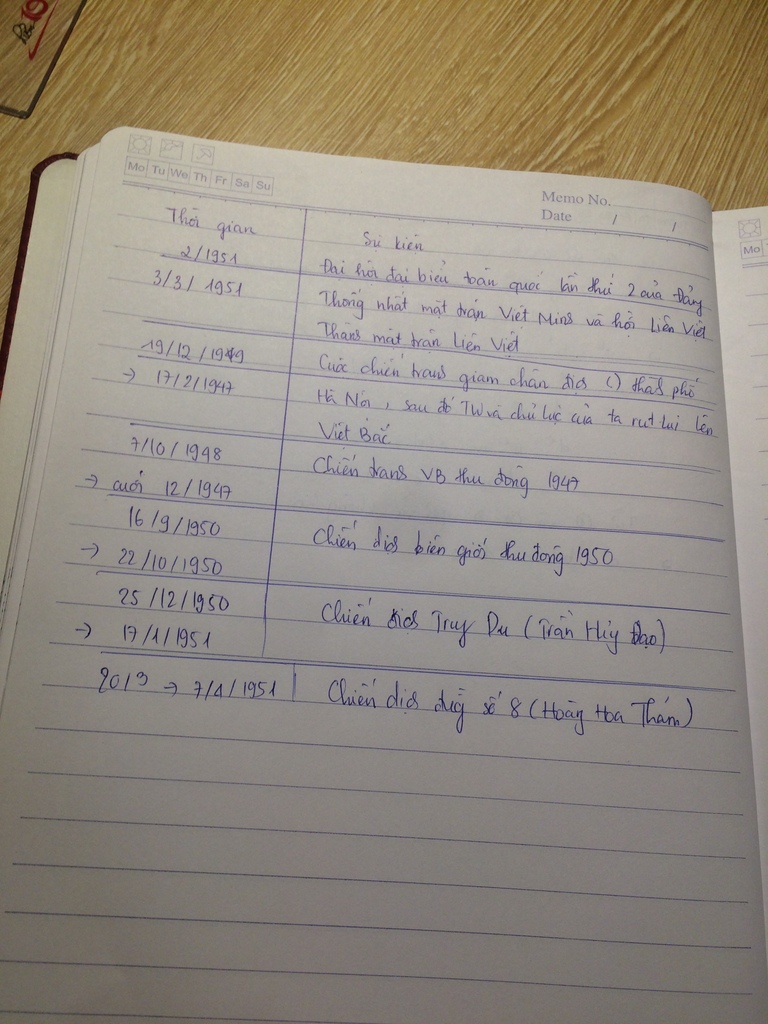 Mo Tu We Th Fr Sa Su
Memo No.
Date / /
Mo
Thời gian
Sự kiện
2/1951
Đại hội đại biểu toàn quốc lần thứ 2 của Đảng
3/3/1951
Thống nhất mặt trận Việt Minh và hội Liên Việt
Thành mặt trận Liên Việt
19/12/1949
Cuộc chiến trong giam chân địch () thành phố
→ 17/2/1947
Hà Nội, sau đó TW và chủ lực của ta rút lui lên
Việt Bắc
7/10/1948
Chiến tranh VB thu đông 1947
→ cuối 12/1947
16/9/1950
Chiến dịch biên giới thu đông 1950
→ 22/10/1950
25/12/1950
Chiến dịch Truy Du (Trần Hưng Đạo)
→ 17/1/1951
20/3 → 7/4/1951
Chiến dịch đường số 8 (Hoàng Hoa Thám)